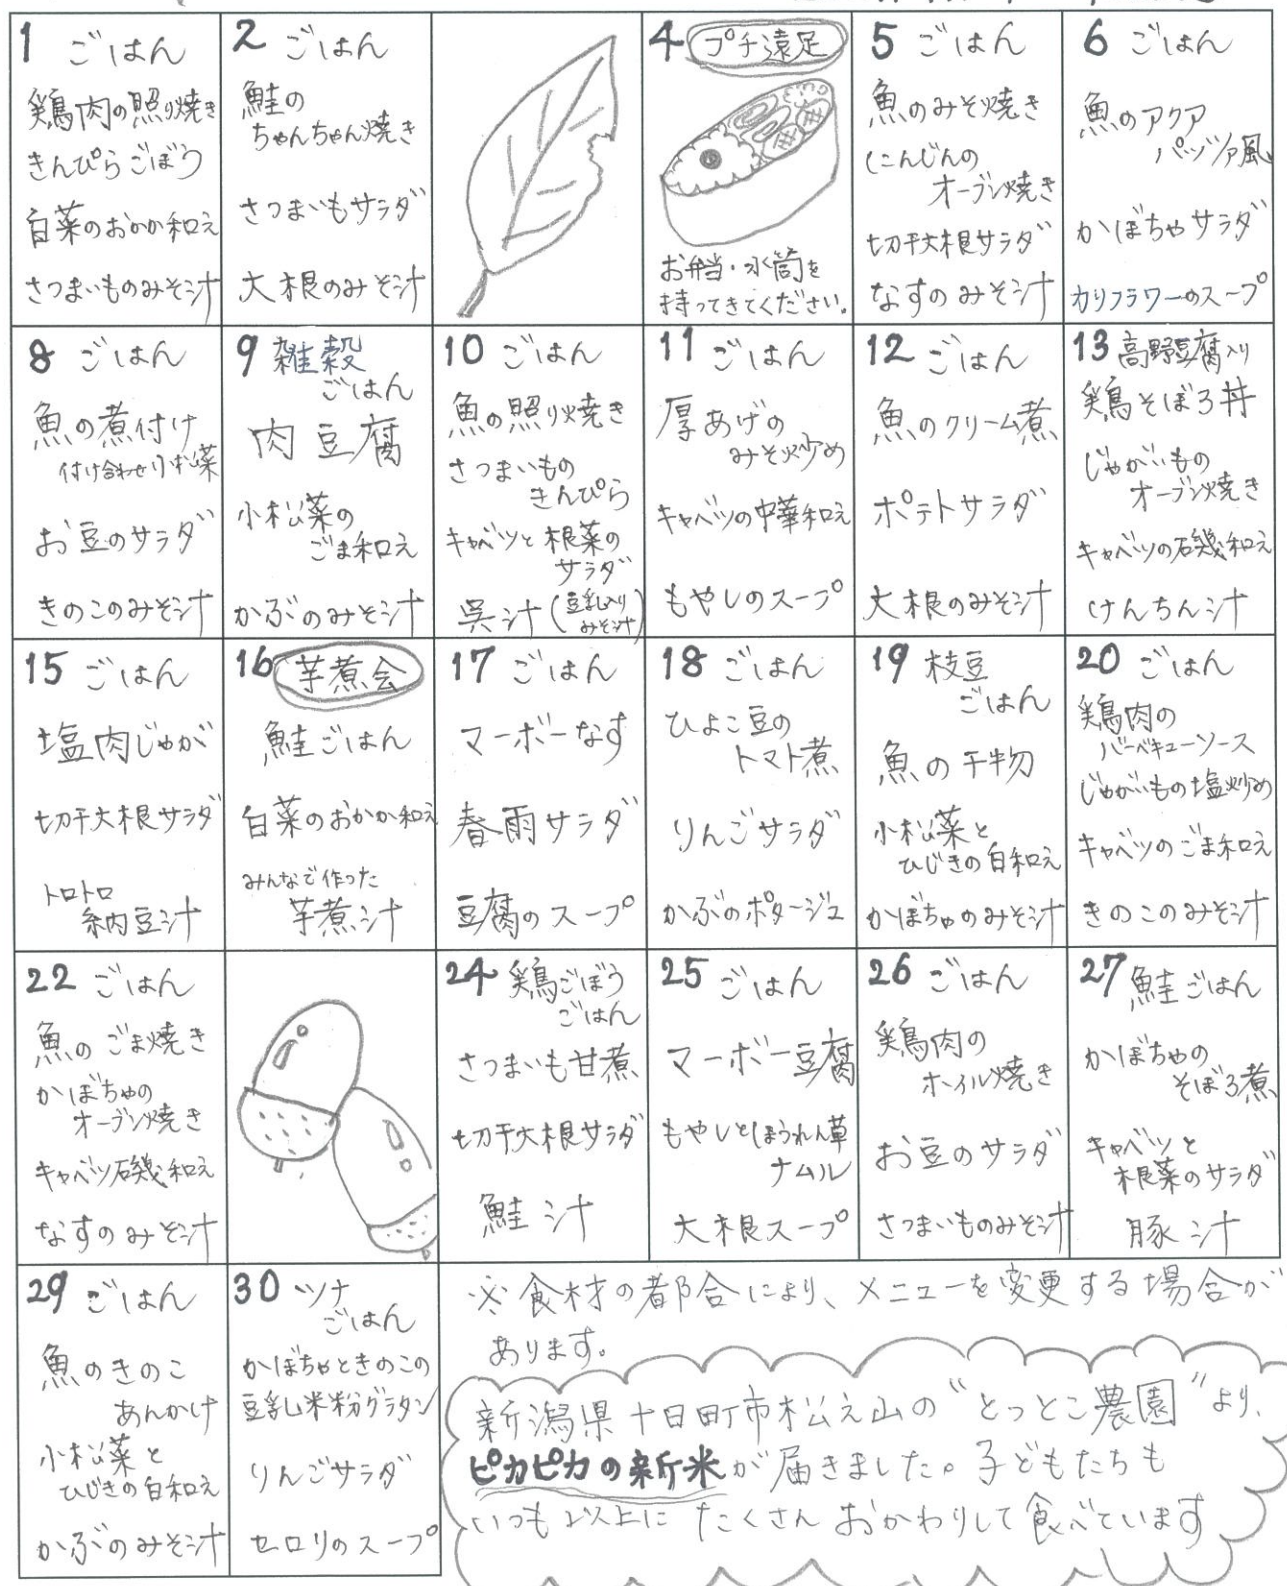 1 ごはん
鶏肉の照り焼き
きんぴらごぼう
白菜のおかか和え
さつまいものみそ汁
2 ごはん
鮭の
ちゃんちゃん焼き
さつまいもサラダ
大根のみそ汁
4 プチ遠足
お弁当・水筒を
持ってきてください。
5 ごはん
魚のみそ焼き
にんじんの
オーブン焼き
切干大根サラダ
なすのみそ汁
6 ごはん
魚のアクア
パッツァ風
かぼちゃサラダ
カリフラワーのスープ
8 ごはん
魚の煮付け
付け合わせゆで菜
お豆のサラダ
きのこのみそ汁
9 雑穀
ごはん
肉豆腐
小松菜の
ごま和え
かぶのみそ汁
10 ごはん
魚の照り焼き
さつまいもの
きんぴら
キャベツと根菜の
サラダ
呉汁(豆乳入り
みそ汁)
11 ごはん
厚あげの
みそ炒め
キャベツの中華和え
もやしのスープ
12 ごはん
魚のクリーム煮
ポテトサラダ
大根のみそ汁
13 高野豆腐入り
鶏そぼろ丼
じゃがいもの
オーブン焼き
キャベツの磯和え
けんちん汁
15 ごはん
塩肉じゃが
切干大根サラダ
トロトロ
納豆汁
16 芋煮会
鮭ごはん
白菜のおかか和え
みんなで作った
芋煮汁
17 ごはん
マーボーなす
春雨サラダ
豆腐のスープ
18 ごはん
ひよこ豆の
トマト煮
りんごサラダ
かぶのポタージュ
19 枝豆
ごはん
魚の干物
小松菜と
ひじきの白和え
かぼちゃのみそ汁
20 ごはん
鶏肉の
バーベキューソース
じゃがいもの塩炒め
キャベツのごま和え
きのこのみそ汁
22 ごはん
魚のごま焼き
かぼちゃの
オーブン焼き
キャベツ磯和え
なすのみそ汁
24 鶏ごぼう
ごはん
さつまいも甘煮
切干大根サラダ
鮭汁
25 ごはん
マーボー豆腐
もやしとほうれん草
ナムル
大根スープ
26 ごはん
鶏肉の
ホイル焼き
お豆のサラダ
さつまいものみそ汁
27 鮭ごはん
かぼちゃの
そぼろ煮
キャベツと
根菜のサラダ
豚汁
29 ごはん
魚のきのこ
あんかけ
小松菜と
ひじきの白和え
かぶのみそ汁
30 ツナ
ごはん
かぼちゃときのこの
豆乳米粉グラタン
りんごサラダ
セロリのスープ
※食材の都合により、メニューを変更する場合が
あります。
新潟県十日町市松之山の“とっとこ農園”より、
ピカピカの新米が届きました。子どもたちも
いつも以上にたくさんおかわりして食べています